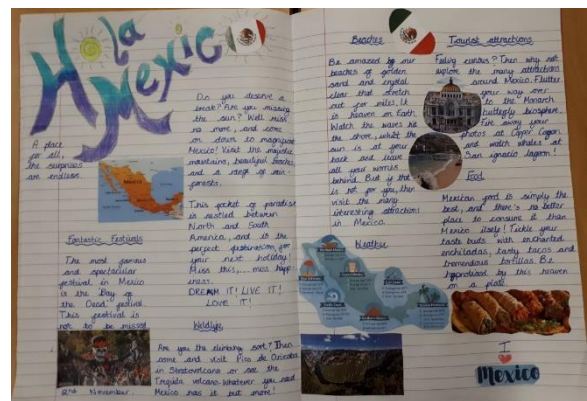 Hola
Mexico
A place
for all,
the surprises
are endless.
Do you deserve a
break? Are you missing
the sun? Well miss
no more, and come
on down to magnificent
Mexico! Visit the majestic
mountains, beautiful beaches
and a range of rain-
forests.
This pocket of paradise
is nestled between
North and South
America, and is the
perfect destination for
your next holiday!
Miss this,... miss happ
iness.
DREAM IT! LIVE IT!
LOVE IT!
MEXICO
Fantastic Festivals
The most famous
and spectacular
festival in Mexico
is the Day of
the Dead festival.
This festival is
not to be missed
2nd November
Wildlife
Are you the climbing sort? Then
come and visit Pico de Orizaba
in Stratovolcano or see the
volcano. Whatever you need
Mexico has it but more!
Beaches
Be amazed by our
beaches of golden
sand and crystal
clear that stretch
out for miles. It
is heaven on Earth.
Watch the waves hit
the shore, whilst the
sun is at your
back and leave
all your worries
behind. But if that
is not for you, then
visit the many
interesting attractions
in Mexico.
Weather
Tourist attractions
Feeling curious? Then why not
explore the many attractions
around Mexico. Flutter
your way over
to the Monarch
butterfly biosphere.
Fire away your
photos at Copper Canyon
and watch whales at
San ignacio lagoon!
Food
Mexican food is simply the
best, and there's no better
place to consume it than
Mexico itself! Tickle your
taste buds with enchanted
enchiladas, tasty tacos and
tremendous tortillas. Be
hypnotised by this heaven
on a plate.
I
Mexico